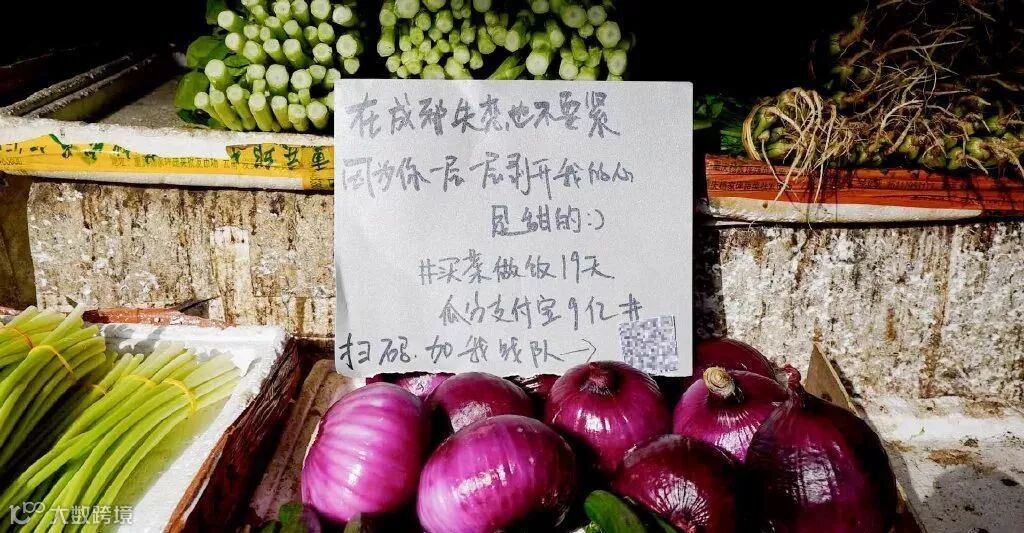 在成都失恋也不要紧
因为你一层一层剥开我的心
是甜的:)
#买菜做饭19天
瓜分支付宝9亿#
扫码.加我战队→
大数跨境